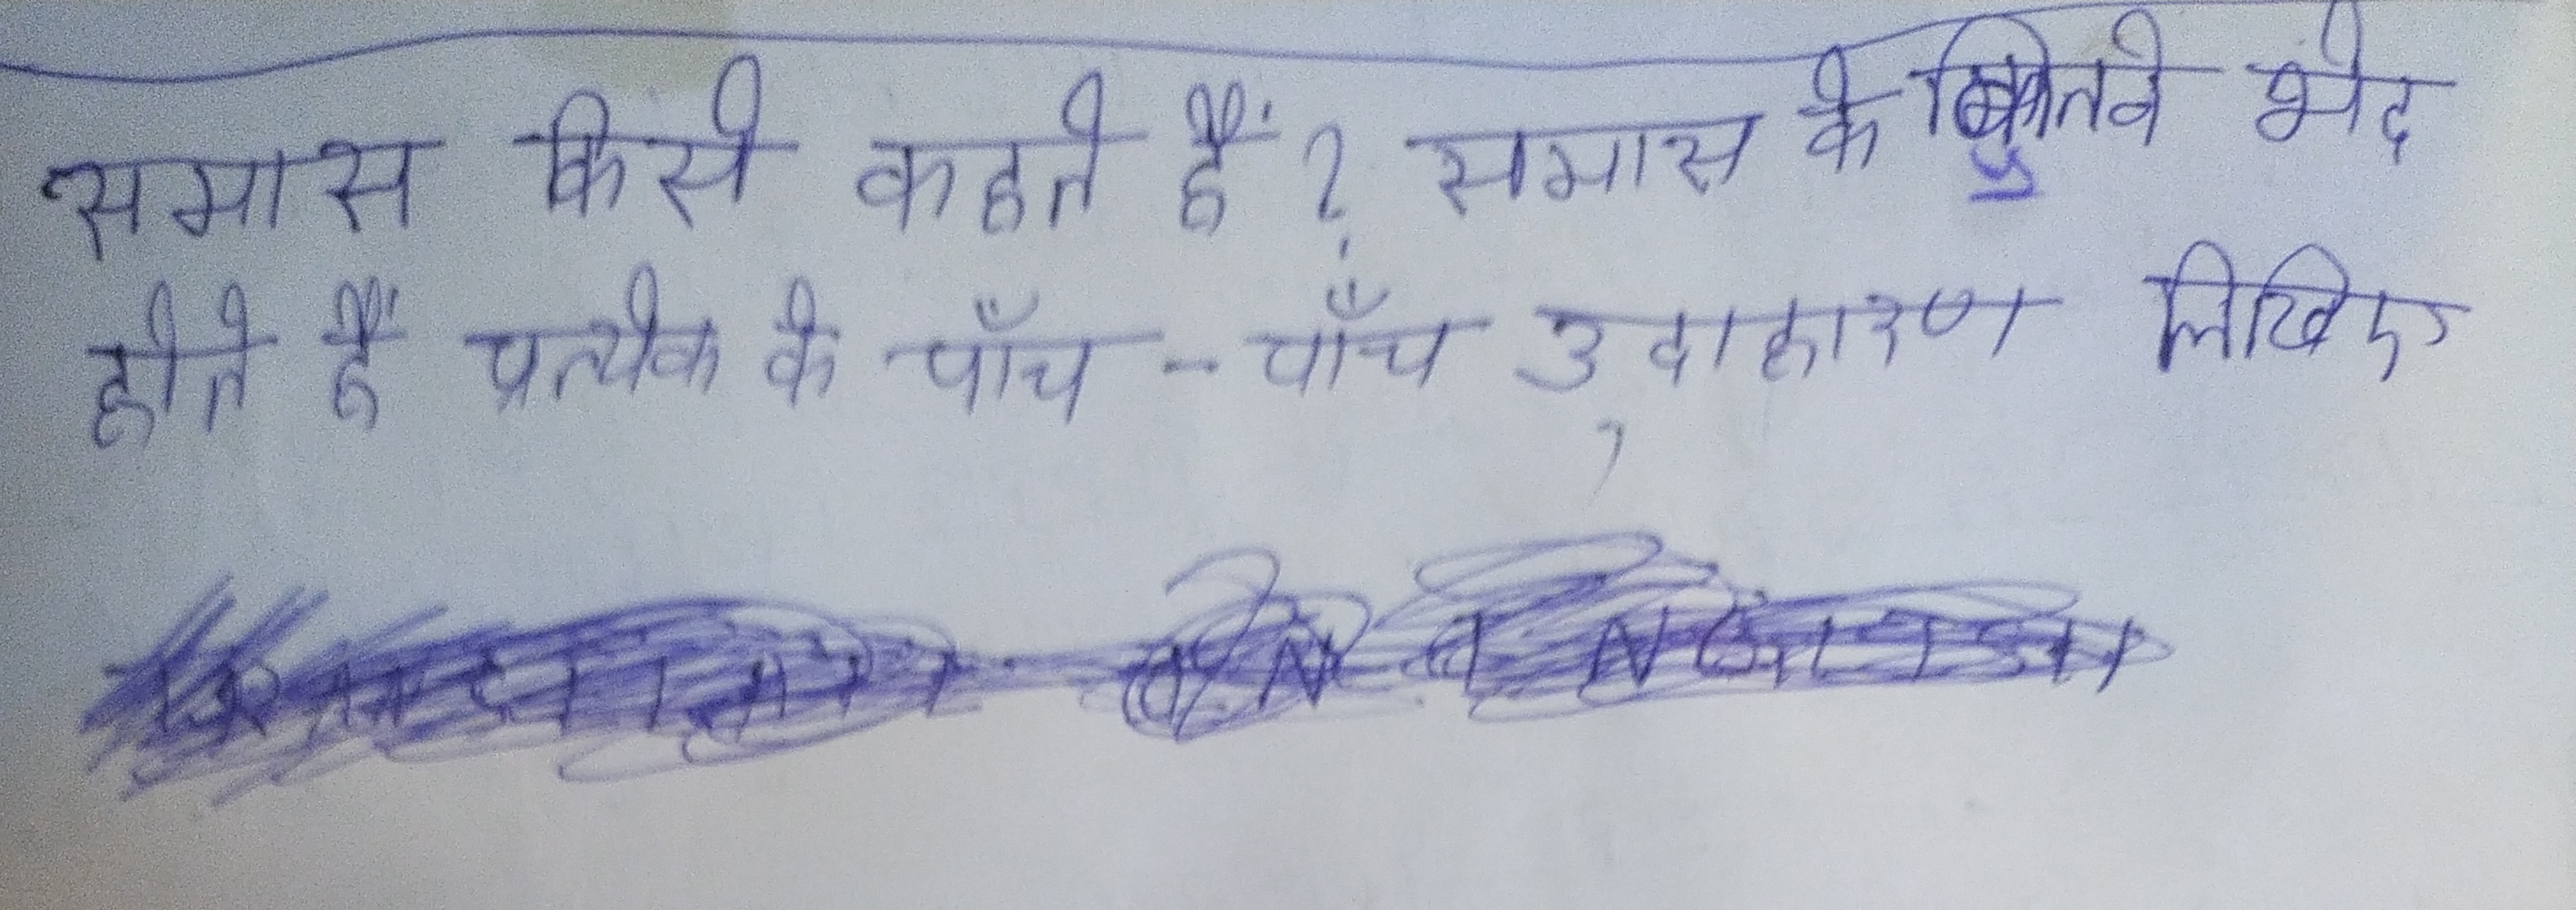 समास किसे कहते हैं? समास के कितने भेद
होते हैं प्रत्येक के पाँच - पाँच उदाहारण लिखिए